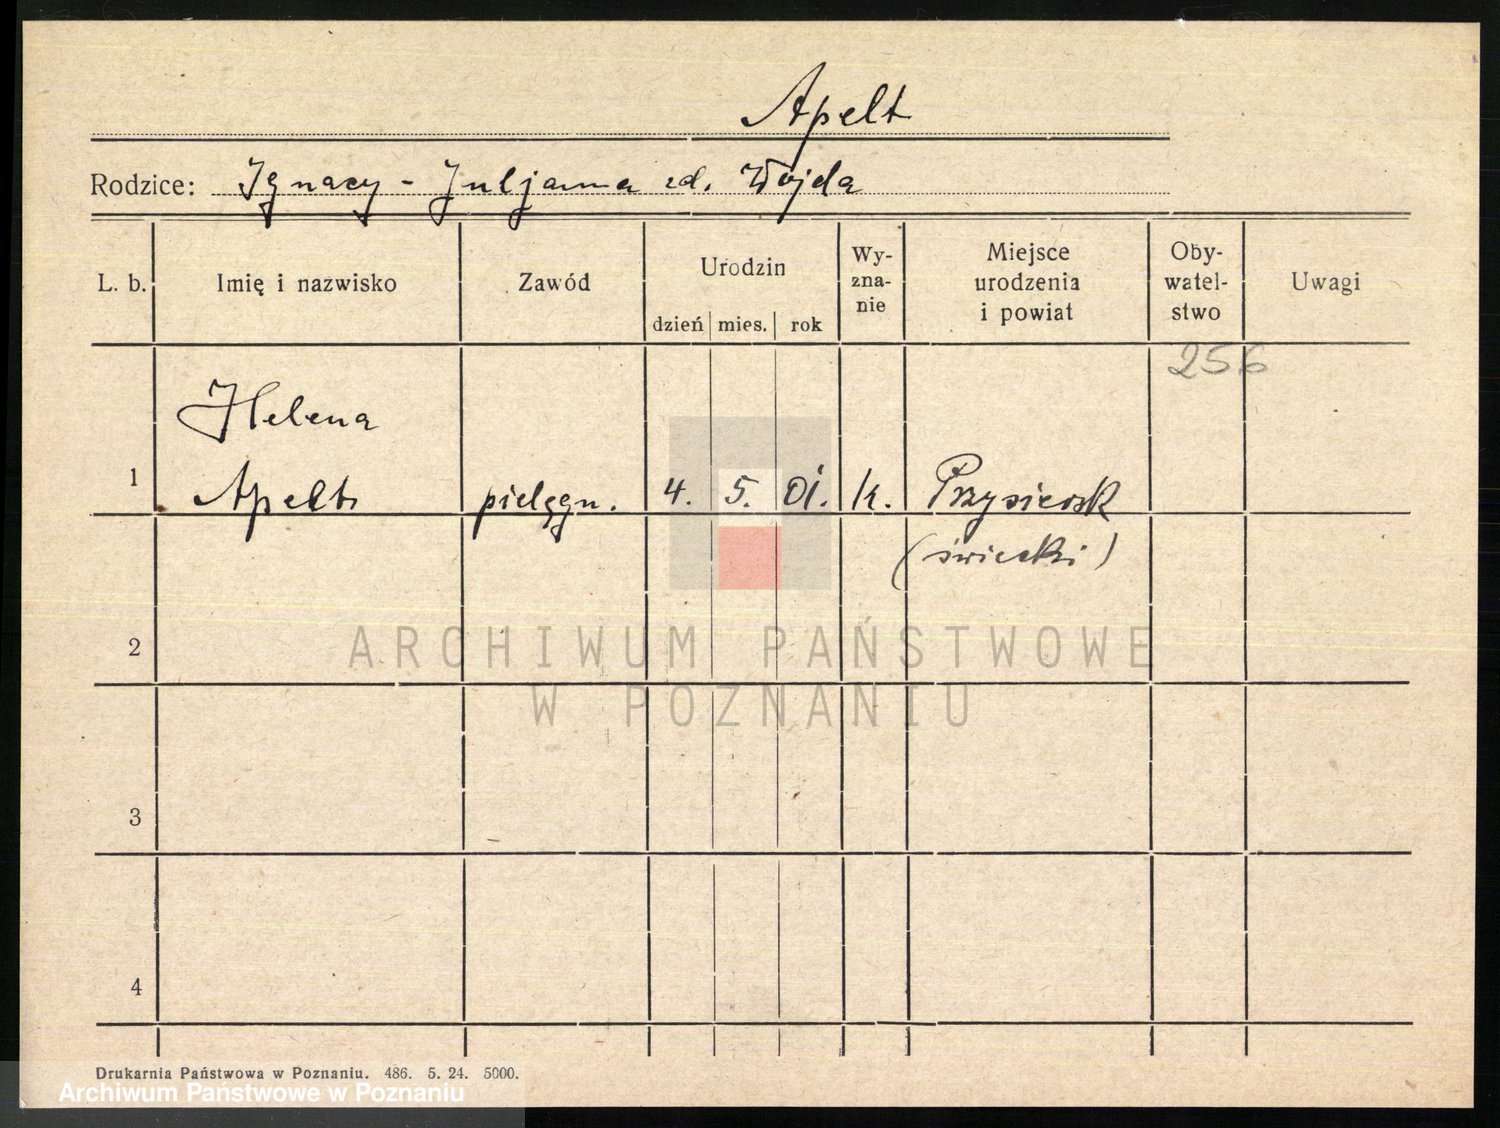 Apelt
Rodzice: Ignacy - Juljanna zd. Wojda
L. b. Imię i nazwisko Zawód Urodzin dzień mies. rok Wy-zna-nie Miejsce urodzenia i powiat Oby-watel-stwo Uwagi
256
Helena
1 Apelt pielęgn. 4. 5. 01. k. Przysiersk
(świecki)
2
ARCHIWUM PAŃSTWOWE
W POZNANIU
3
4
Drukarnia Państwowa w Poznaniu. 486. 5. 24. 5000.
Archiwum Państwowe w Poznaniu